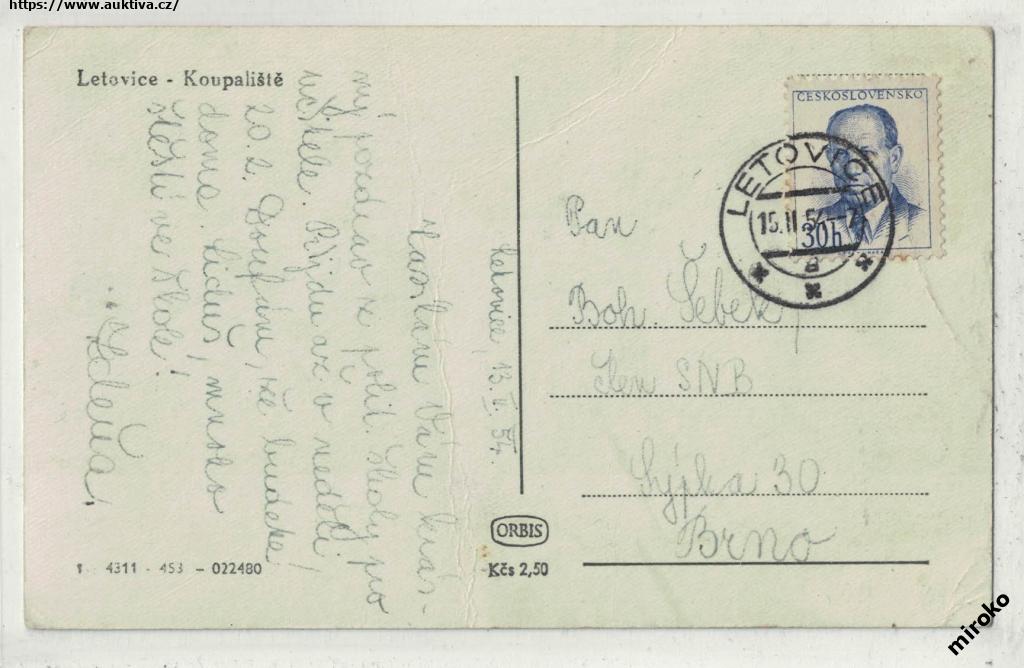 https://www.auktiva.cz/
Letovice - Koupaliště
ČESKOSLOVENSKO
30h
LETOVICE
15.II.54-7
a
Letovice, 13. II. 54.
Vám krás-
ný pozdrav z polit. školy pro
Přijdu až v neděli
20. 2. Doufám, že budete
doma. mnoho
štěstí ve škole!
Pan
Boh. Šebek,
člen SNB
Sýpka 30
Brno
ORBIS
Kčs 2,50
1 4311 - 453 - 022480
miroko